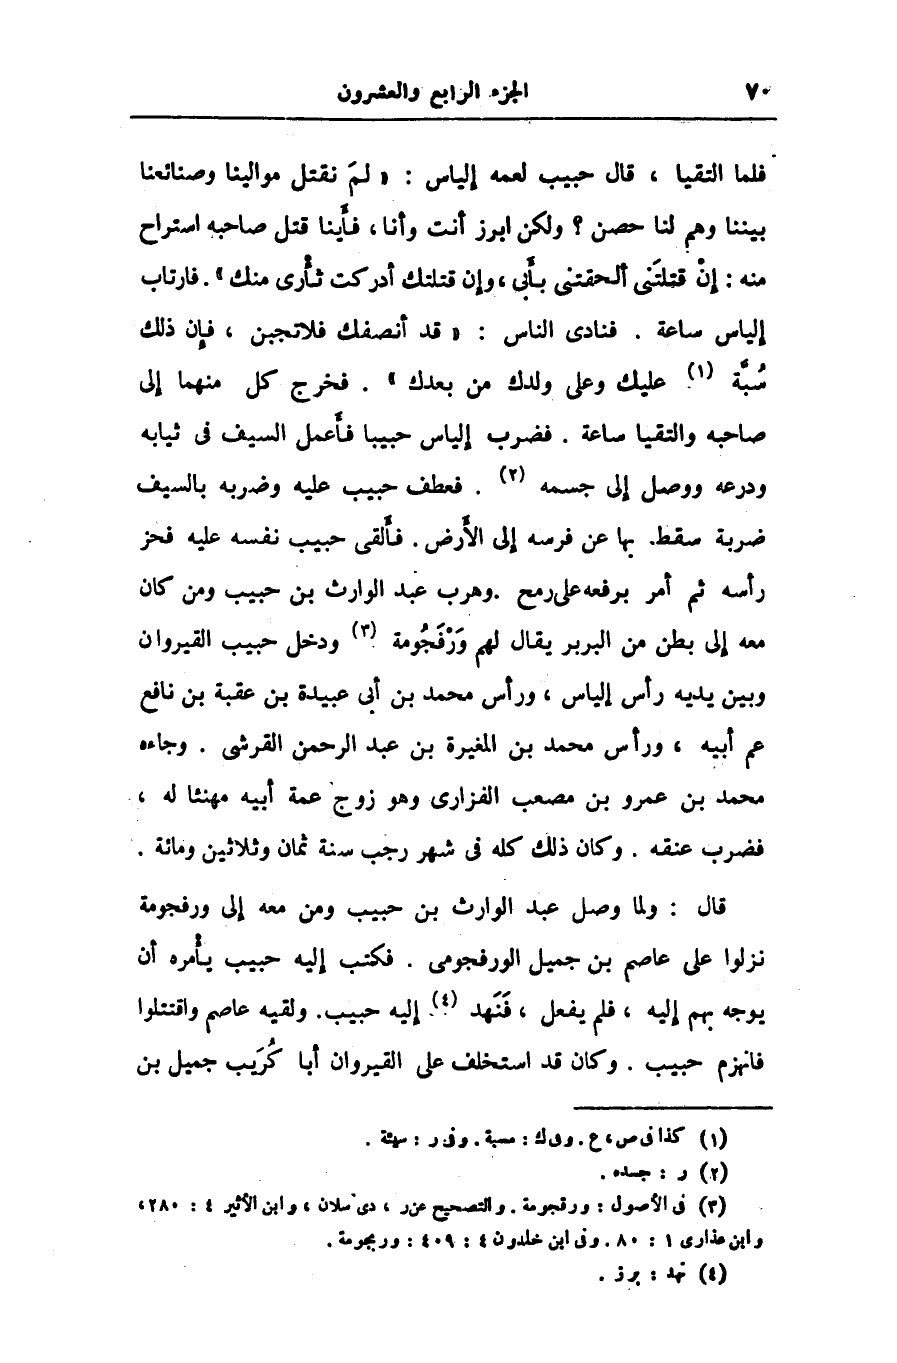 ٧٠ الجزء الرابع والعشرون
فلما التقيا ، قال حبيب لعمه إلياس : « لمَ نقتل موالينا وصنائعنا
بيننا وهم لنا حصن ؟ ولكن ابرز أنت وأنا ، فأينا قتل صاحبه استراح
منه : إنْ قتلتَنى ألحقتنى بأبى ، وإن قتلتك أدركت ثأرى منك » . فارتاب
إلياس ساعة . فنادى الناس : « قد أنصفك فلاتجبن ، فإن ذلك
سُبَّة (١) عليك وعلى ولدك من بعدك » . فخرج كل منهما إلى
صاحبه والتقيا ساعة . فضرب إلياس حبيبا فأعمل السيف فى ثيابه
ودرعه ووصل إلى جسمه (٢) . فعطف حبيب عليه وضربه بالسيف
ضربة سقط بها عن فرسه إلى الأرض . فألقى حبيب نفسه عليه فحز
رأسه ثم أمر برفعه على رمح . وهرب عبد الوارث بن حبيب ومن كان
معه إلى بطن من البربر يقال لهم وَرْفَجُومة (٣) ودخل حبيب القيروان
وبين يديه رأس إلياس ، ورأس محمد بن أبى عبيدة بن عقبة بن نافع
عم أبيه ، ورأس محمد بن المغيرة بن عبد الرحمن القرشى . وجاءه
محمد بن عمرو بن مصعب الفزارى وهو زوج عمة أبيه مهنئا له ،
فضرب عنقه . وكان ذلك كله فى شهر رجب سنة ثمان وثلاثين ومائة .
قال : ولما وصل عبد الوارث بن حبيب ومن معه إلى ورفجومة
نزلوا على عاصم بن جميل الورفجومى . فكتب إليه حبيب يأمره أن
يوجه بهم إليه ، فلم يفعل ، فَنَهد (٤) إليه حبيب . ولقيه عاصم واقتتلوا
فانهزم حبيب . وكان قد استخلف على القيروان أبا كُرَيب جميل بن
(١) كذا فى ص ، ع . وى ك : مسبة . وفى ر : سيئة .
(٢) ر : جسده .
(٣) فى الأصول : ورقجومة . والتصحيح عن ر ، دى سلان ، وابن الأثير ٤ : ٢٨٠ ،
وابن عذارى ١ : ٨٠ . وفى ابن خلدون ٤ : ٤٠٩ : وربجومة .
(٤) نهد : برز .